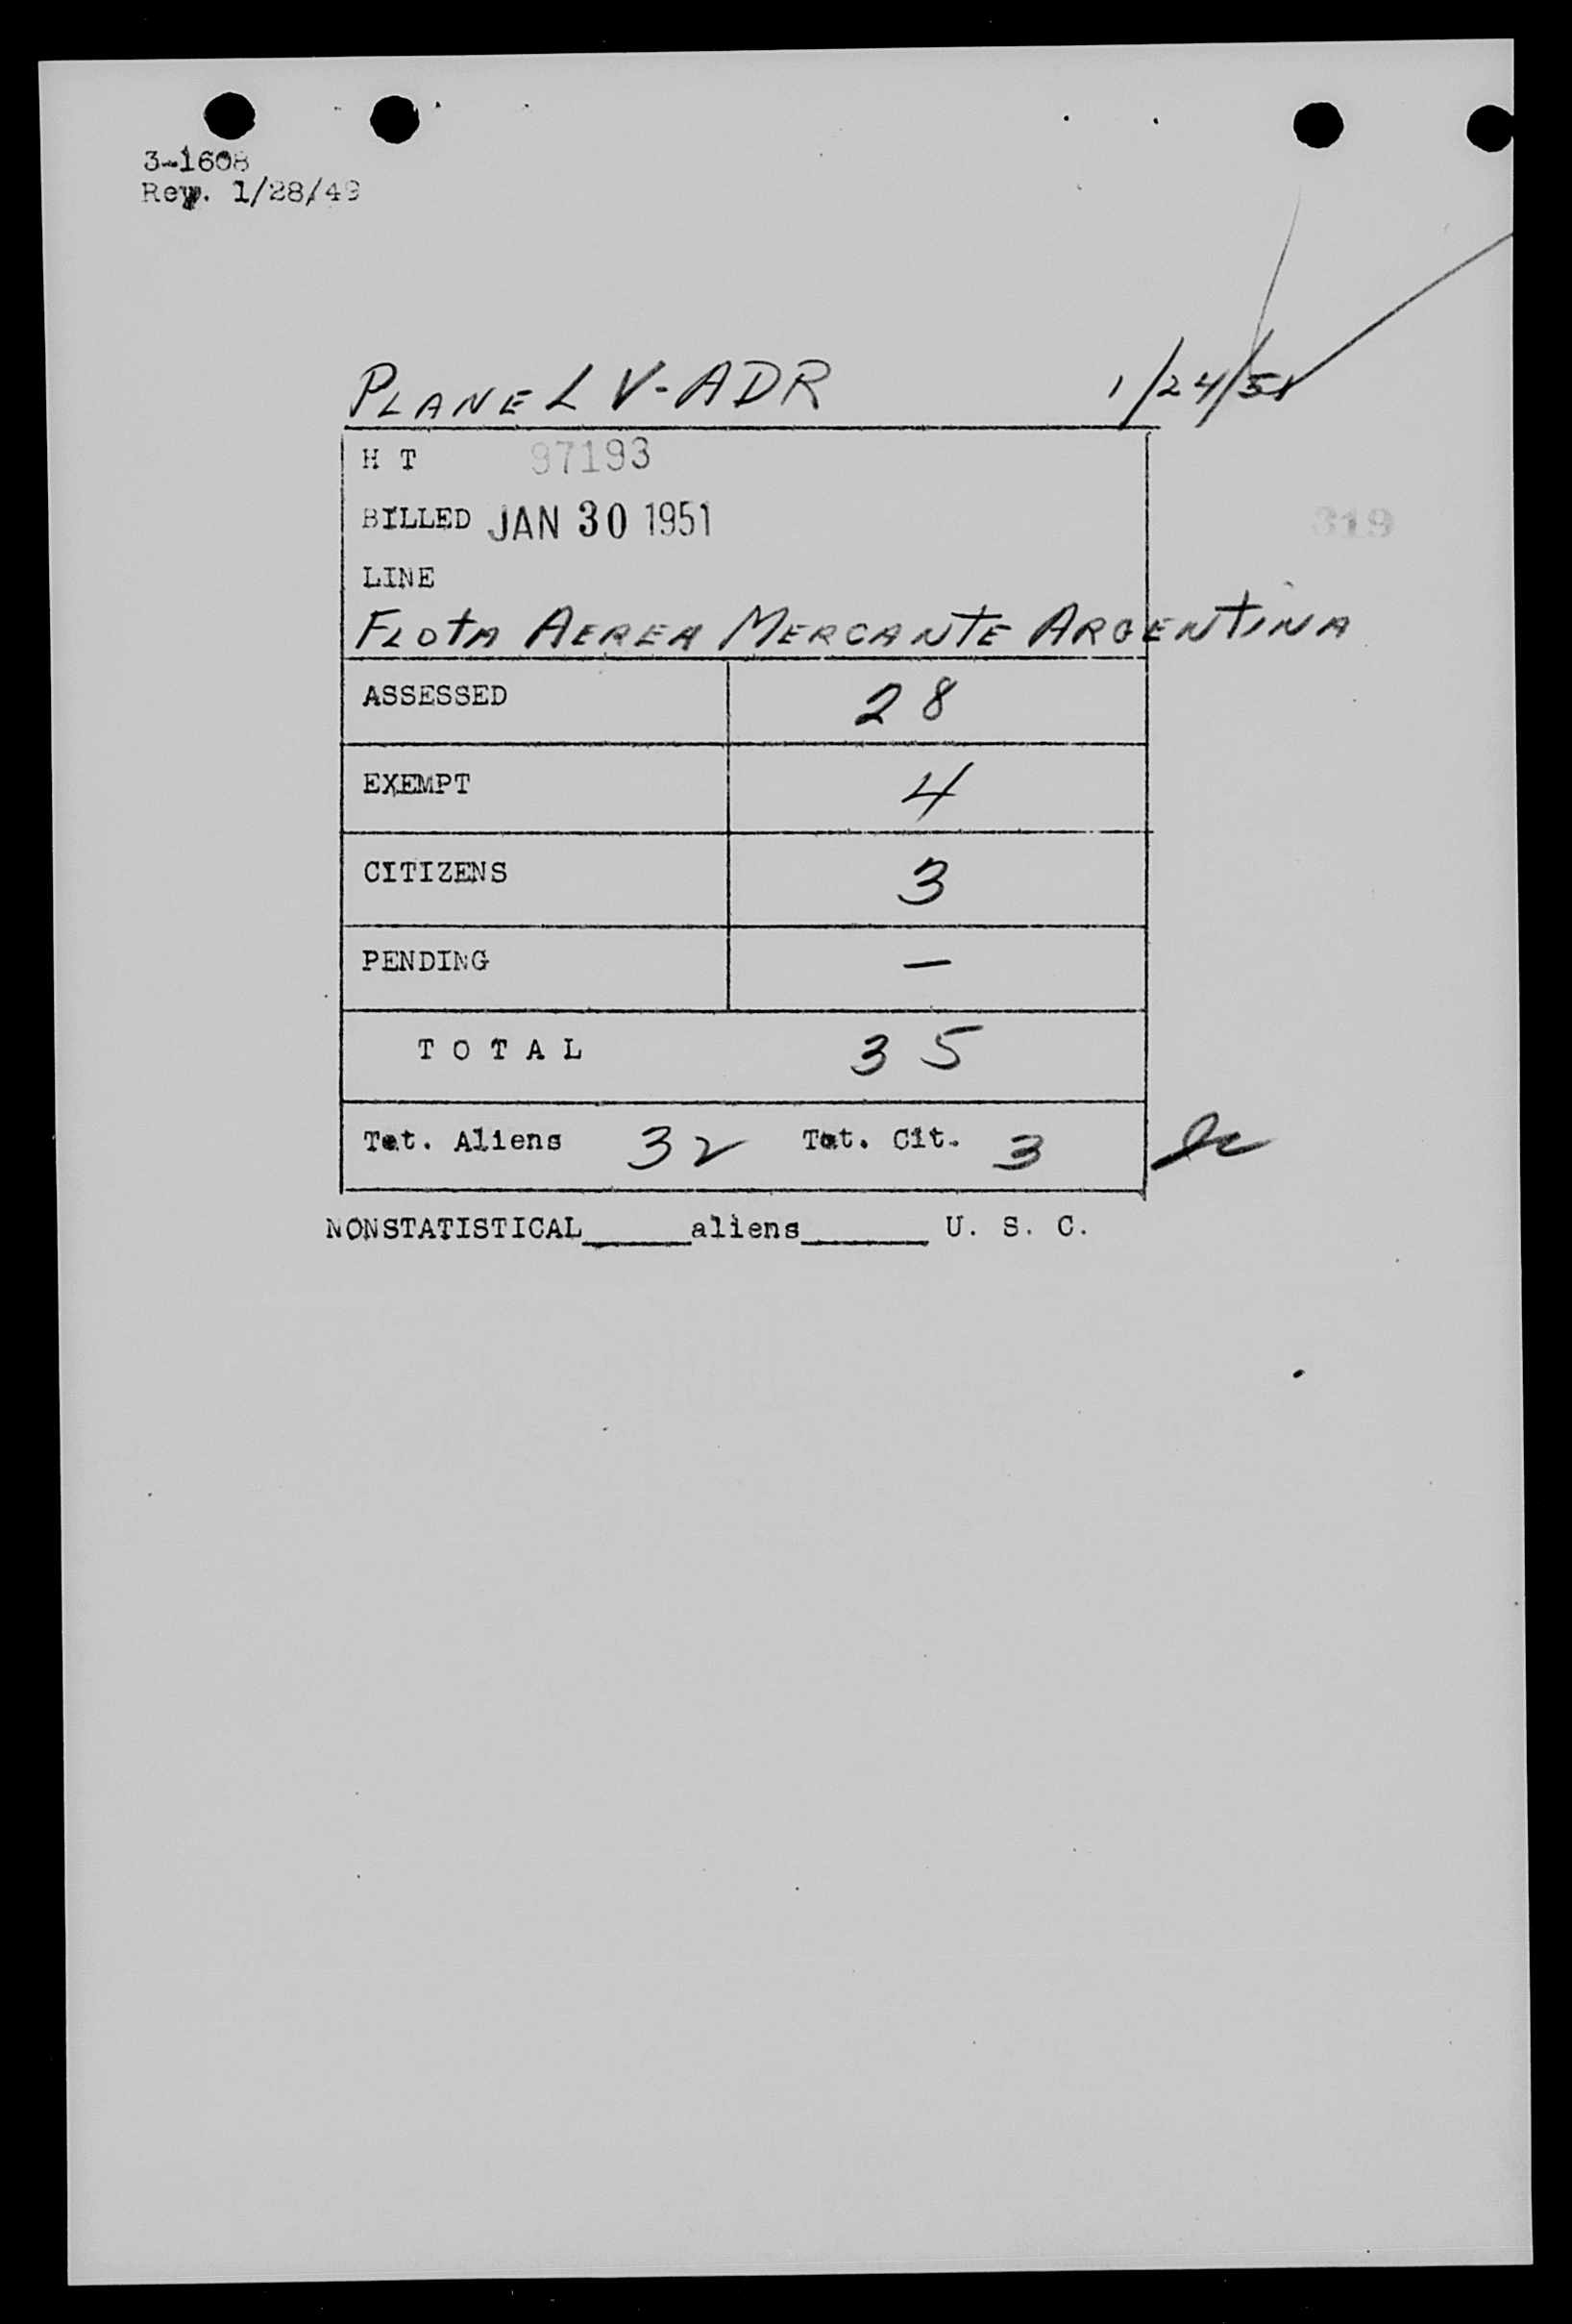 3-1608
Rev. 1/28/49
PLANE LV-ADR 1/24/51
H T 97193
BILLED JAN 30 1951
319
LINE
FLOTA AEREA MERCANTE ARGENTINA
ASSESSED 28
EXEMPT 4
CITIZENS 3
PENDING —
T O T A L 35
Tot. Aliens 32 Tot. Cit. 3
NONSTATISTICAL______aliens_______ U. S. C.